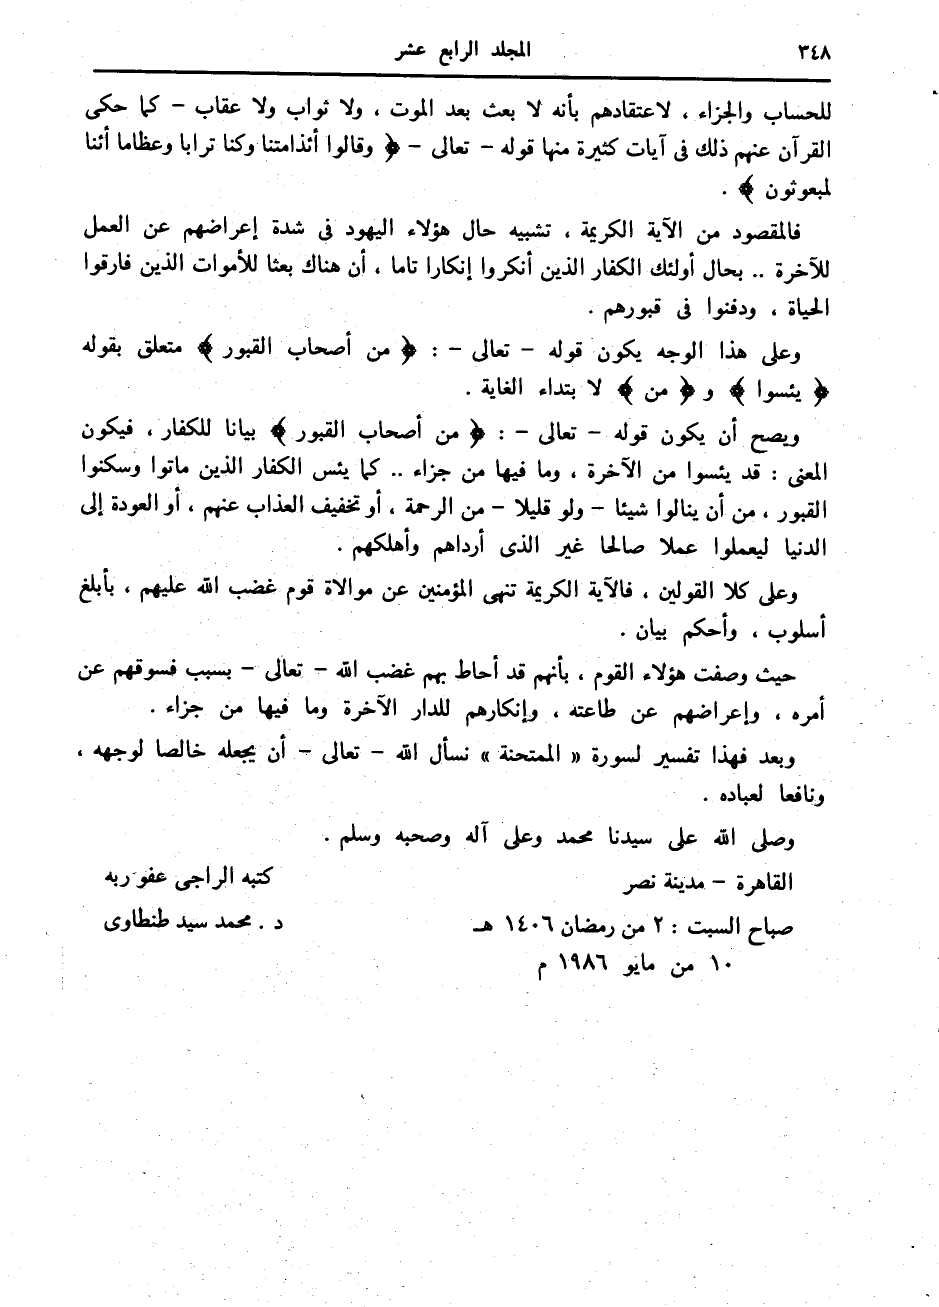 ٣٤٨
المجلد الرابع عشر
للحساب والجزاء ، لاعتقادهم بأنه لا بعث بعد الموت ، ولا ثواب ولا عقاب – كما حكى
القرآن عنهم ذلك فى آيات كثيرة منها قوله – تعالى – ﴿ وقالوا أئذامتنا وكنا ترابا وعظاما أئنا
لمبعوثون ﴾ .
فالمقصود من الآية الكريمة ، تشبيه حال هؤلاء اليهود فى شدة إعراضهم عن العمل
للآخرة .. بحال أولئك الكفار الذين أنكروا إنكارا تاما ، أن هناك بعثا للأموات الذين فارقوا
الحياة ، ودفنوا فى قبورهم .
وعلى هذا الوجه يكون قوله – تعالى – : ﴿ من أصحاب القبور ﴾ متعلق بقوله
﴿ يئسوا ﴾ و ﴿ من ﴾ لا بتداء الغاية .
ويصح أن يكون قوله – تعالى – : ﴿ من أصحاب القبور ﴾ بيانا للكفار ، فيكون
المعنى : قد يئسوا من الآخرة ، وما فيها من جزاء .. كما يئس الكفار الذين ماتوا وسكنوا
القبور ، من أن ينالوا شيئا – ولو قليلا – من الرحمة ، أو تخفيف العذاب عنهم ، أو العودة إلى
الدنيا ليعملوا عملا صالحا غير الذى أرداهم وأهلكهم .
وعلى كلا القولين ، فالآية الكريمة تنهى المؤمنين عن موالاة قوم غضب الله عليهم ، بأبلغ
أسلوب ، وأحكم بيان .
حيث وصفت هؤلاء القوم ، بأنهم قد أحاط بهم غضب الله – تعالى – بسبب فسوقهم عن
أمره ، وإعراضهم عن طاعته ، وإنكارهم للدار الآخرة وما فيها من جزاء .
وبعد فهذا تفسير لسورة « الممتحنة » نسأل الله – تعالى – أن يجعله خالصا لوجهه ،
ونافعا لعباده .
وصلى الله على سيدنا محمد وعلى آله وصحبه وسلم .
القاهرة – مدينة نصر
كتبه الراجى عفو ربه
صباح السبت : ٢ من رمضان ١٤٠٦ هـ
د . محمد سيد طنطاوى
١٠ من مايو ١٩٨٦ م